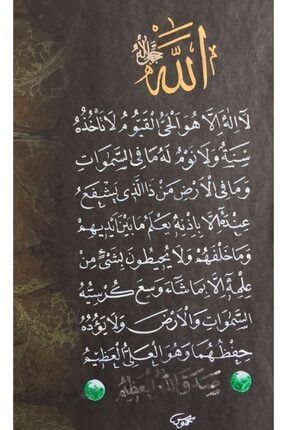 الله
جل جلاله
لا اله الا هو الحي القيوم لا تأخذه
سنة ولا نوم له ما في السموات
وما في الأرض من ذا الذي يشفع
عنده الا بإذنه يعلم ما بين أيديهم
وما خلفهم ولا يحيطون بشئ من
علمه الا بما شاء وسع كرسيه
السموات والأرض ولا يؤده
حفظهما وهو العلي العظيم
صدق الله العظيم